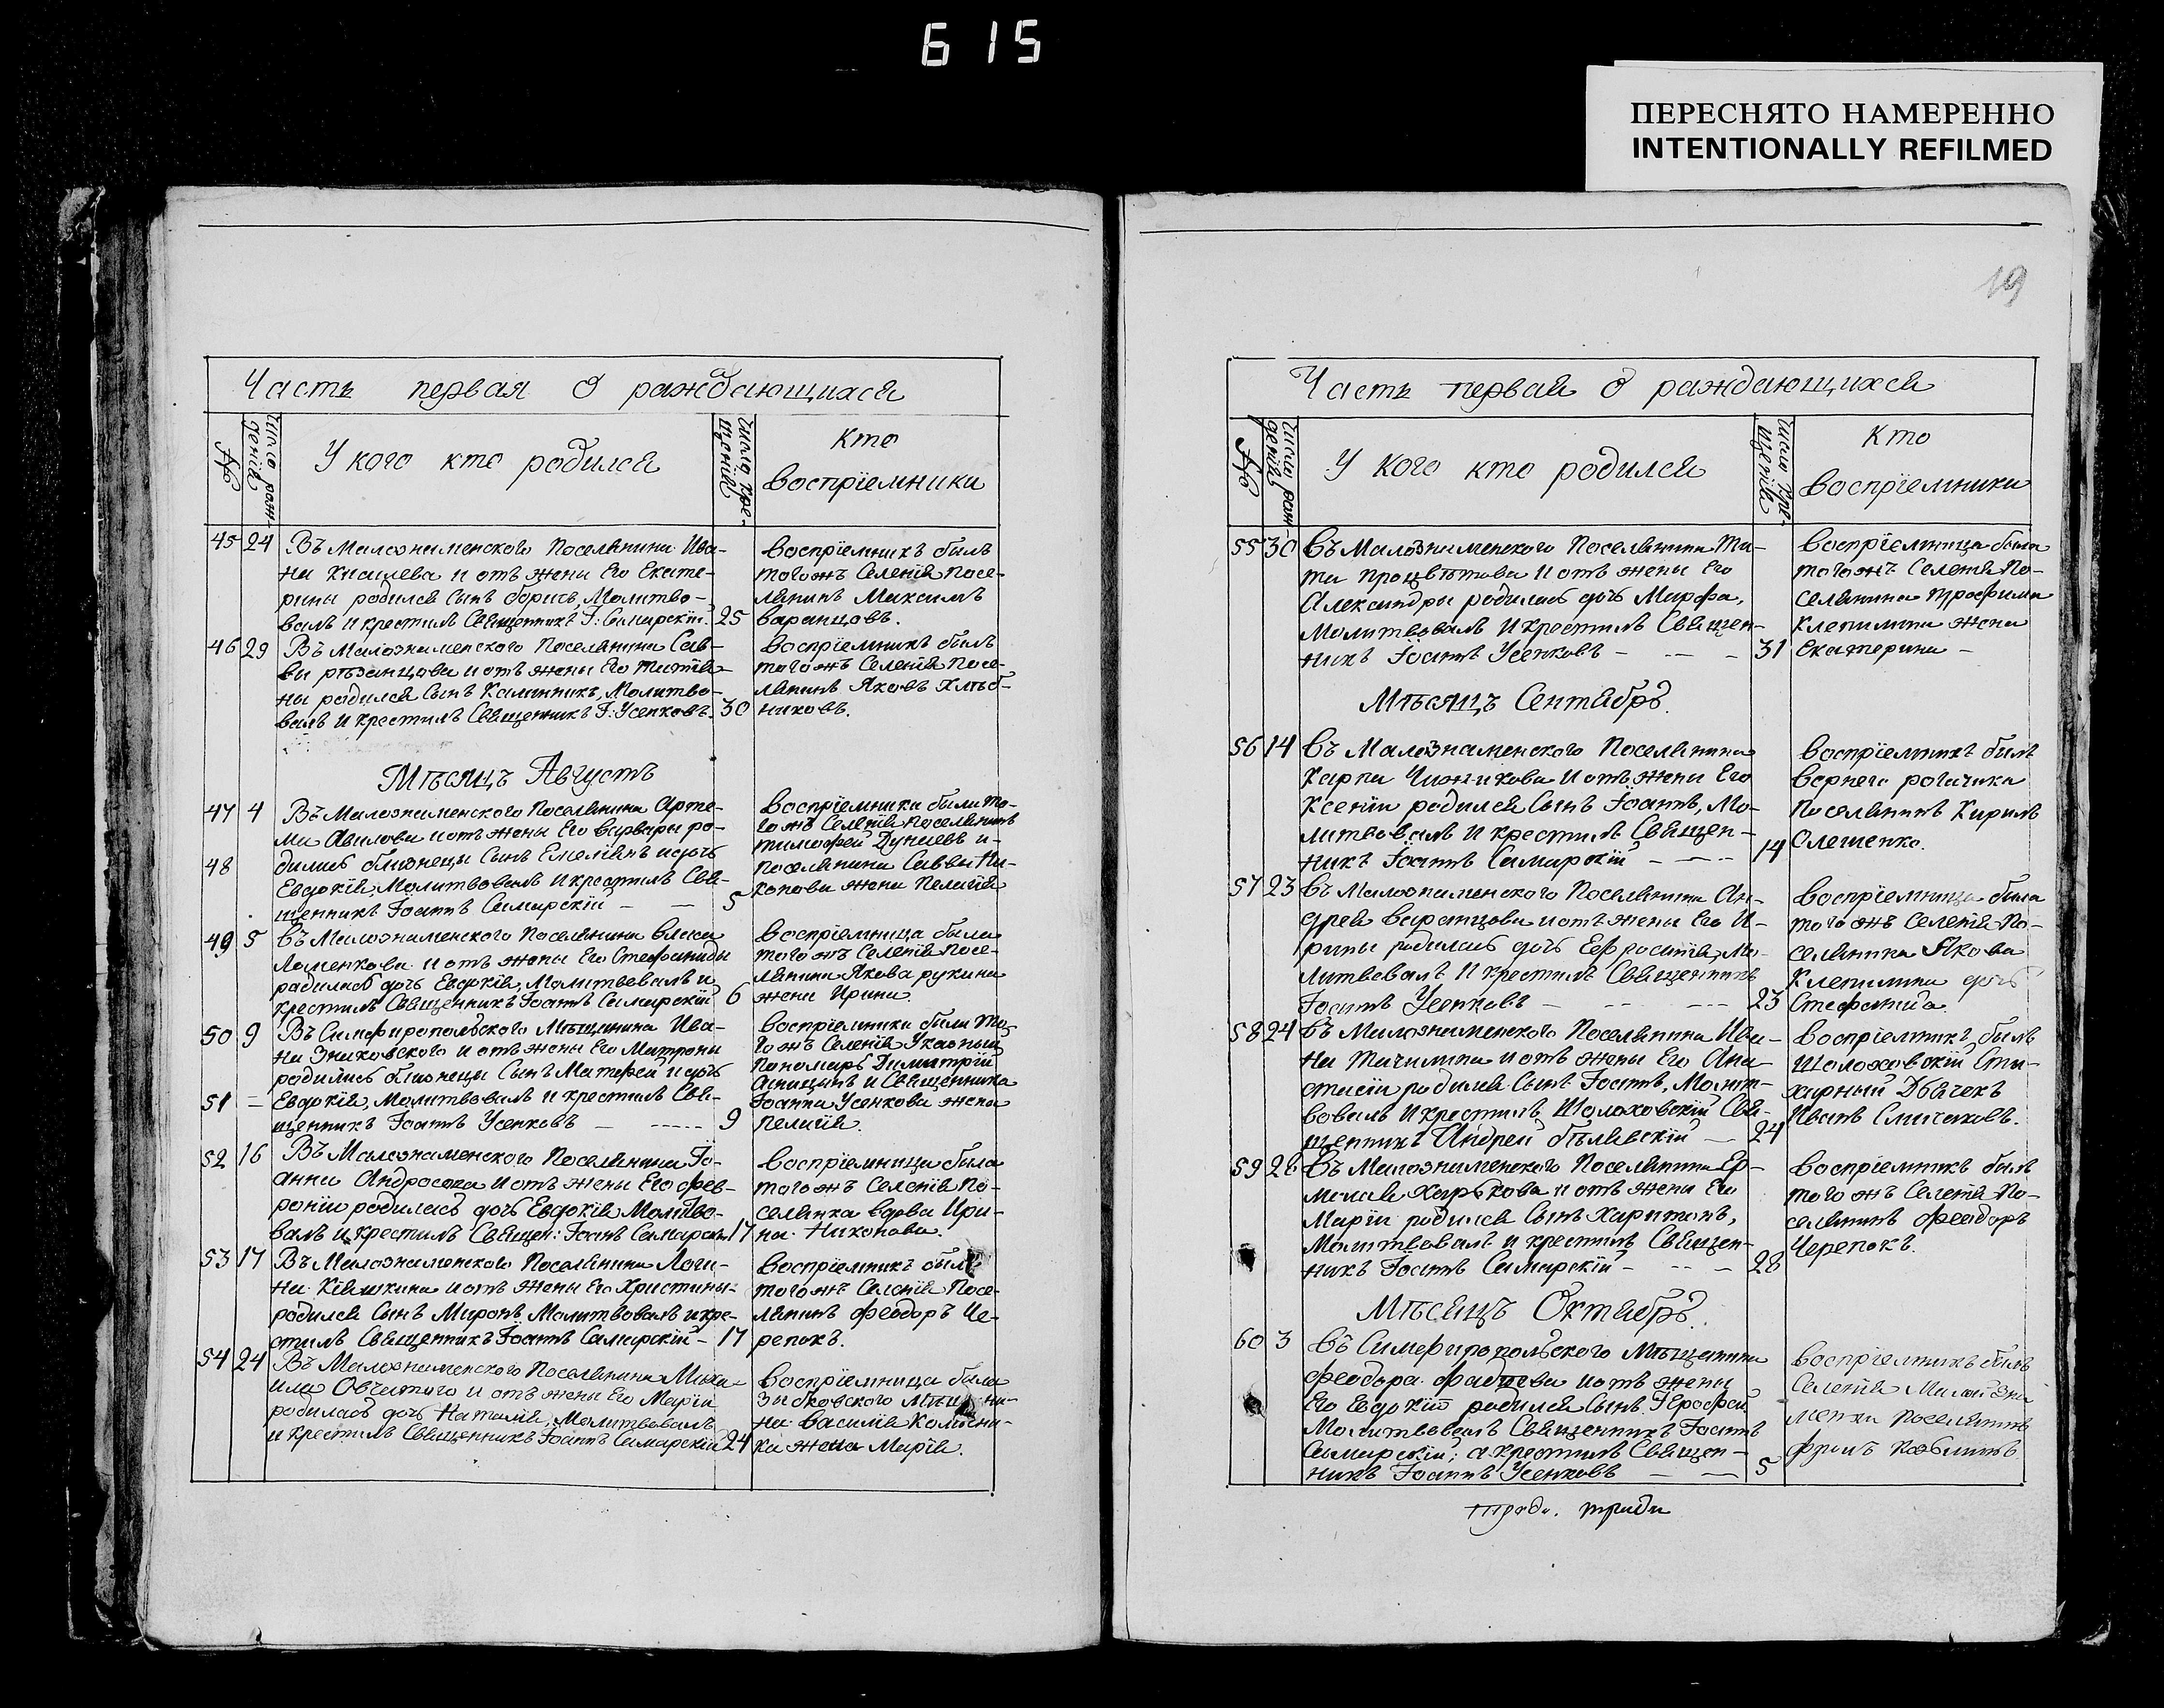 615
ПЕРЕСНЯТО НАМЕРЕННО
INTENTIONALLY REFILMED
19
Часть первая о раждающихся
№
Число рож-
денія
У кого кто родился
Число кре-
щенія
Кто
воспріемники
45 24 Въ Малознаменского Поселянина Ива-
на Киселева и отъ жены Его Екате-
рины родился Сынъ борисъ, Молитво-
валъ и крестилъ Священникъ І: Самарскій. 25
воспріемникъ былъ
тогожъ Селенія Посе-
лянинъ Максимъ
варанцовъ.
46 29 Въ Малознаменского Поселянина Сав-
вы рѣзанцова и отъ жены Его татія-
ны родился Сынъ Калинникъ, Молитво-
валъ и крестилъ Священникъ І: Усенковъ. 30
воспріемникъ былъ
тогожъ Селенія Посе-
лянинъ Яковъ Хлѣб-
никовъ.
Мѣсяцъ Августъ
47 4 Въ Малознаменского Поселянина Арте-
ма Авилова и отъ жены Его варвары ро-
48 дились близнецы Сынъ Емеліянъ и дочь
Евдокія, Молитвовалъ и крестилъ Свя-
щенникъ Іоаннъ Самарскій 5
воспріемники были то-
гожъ Селенія Поселянинъ
тимофей Дунаевъ и
поселянина Саввы Ни-
конова жена Пелагія
49 5 Въ Малознаменского Поселянина власа
Ломенкова и отъ жены Его Стефаниды
радилась дочь Евдокія, Молитвовалъ и
крестилъ Священникъ Іоаннъ Самарскій 6
воспріемница была
того жъ Селенія Посе-
лянина Якова рукина
жена Ирина.
50 9 Въ Симферопольского Мѣщанина Ива-
на Зиковского и отъ жены Его Матроны
родились близнецы Сынъ Матфей и дочь
51 — Евдокія, Молитвовалъ и крестилъ Свя-
щенникъ Іоаннъ Усенковъ 9
воспріемники были то-
гожъ Селенія Указный
Пономарь Димитрій
и Священника
Іоанна Усенкова жена
Пелагія.
52 16 Въ Малознаменского Поселянина Іо-
анна Андросова и отъ жены Его фев-
роніи родилась дочь Евдокія Молитво-
валъ и крестилъ Священ: Іоаннъ Самарскій 17
воспріемница была
тогожъ Селенія По-
селянка вдова Ири-
на Никонова.
53 17 Въ Малознаменского Поселянина Логи-
на Кіяшкина и отъ жены Его Христины
родился Сынъ Миронъ, Молитвовалъ и кре-
стилъ Священникъ Іоаннъ Самарскій - 17
воспріемникъ былъ
тогожъ Селенія Посе-
лянинъ феодоръ Че-
репокъ.
54 24 Въ Малознаменского Поселянина Миха-
ила Овчитого и отъ жены Его Маріи
родилась дочь Наталія, Молитвовалъ
и крестилъ Священникъ Іоаннъ Самарскій 24
воспріемница была
на Василія
ка жена Марія.
Часть первая о раждающихся
№
Число рож-
денія
У кого кто родился
Число кре-
щенія
Кто
воспріемники
55 30 Въ Малознаменского Поселянина Ти-
та Процвѣтова и отъ жены Его
Александры родилась дочь Марфа,
Молитвовалъ и крестилъ Священ-
никъ Іоаннъ Усенковъ 31
воспріемница была
тогожъ Селенія По-
селянина трофима
Клепинина жена
Екатерина -
Мѣсяцъ Сентябрь.
56 14 Въ Малознаменского Поселянина
Карпа Чижикова и отъ жены Его
Ксеніи родился Сынъ Іоаннъ, Мо-
литвовалъ и крестилъ Священ-
никъ Іоаннъ Самарскій 14
воспріемникъ былъ
верхнего рогачика
Поселянинъ Кирилъ
Олешенко.
57 23 Въ Малознаменского Поселянина Ан-
дрея варанцова и отъ жены Его И-
рины родилась дочь Ефросинія, Мо-
литвовалъ и крестилъ Священникъ
Іоаннъ Усенковъ 23
воспріемница была
того жъ Селенія По-
селянина Якова
Клепинина дочь
Стефанида.
58 24 Въ Малознаменского Поселянина Ива-
на Тачилина и отъ жены Его Ана-
стасіи родился Сынъ Іоаннъ, Молит-
вовалъ и крестилъ Шолоховскій Свя-
щенникъ Андрей бѣлявскій 24
воспріемникъ былъ
Шолоховскій Сти-
харный Дьячекъ
Иванъ
59 26 Въ Малознаменского Поселянина Ер-
молая Харькова и отъ жены Его
Маріи родился Сынъ Харитонъ,
Молитвовалъ и крестилъ Священ-
никъ Іоаннъ Самарскій 28
воспріемникъ былъ
того жъ Селенія По-
селянинъ феодоръ
Черепокъ.
Мѣсяцъ Октябрь.
60 3 Въ Симферопольского Мѣщанина
феодора фадѣева и отъ жены
Его Евдокіи родился Сынъ Іерофей
Молитвовалъ Священникъ Іоаннъ
Самарскій; а крестилъ Священ-
никъ Іоаннъ Усенковъ 5
воспріемникъ былъ
Селенія Малой Зна-
менки поселянинъ